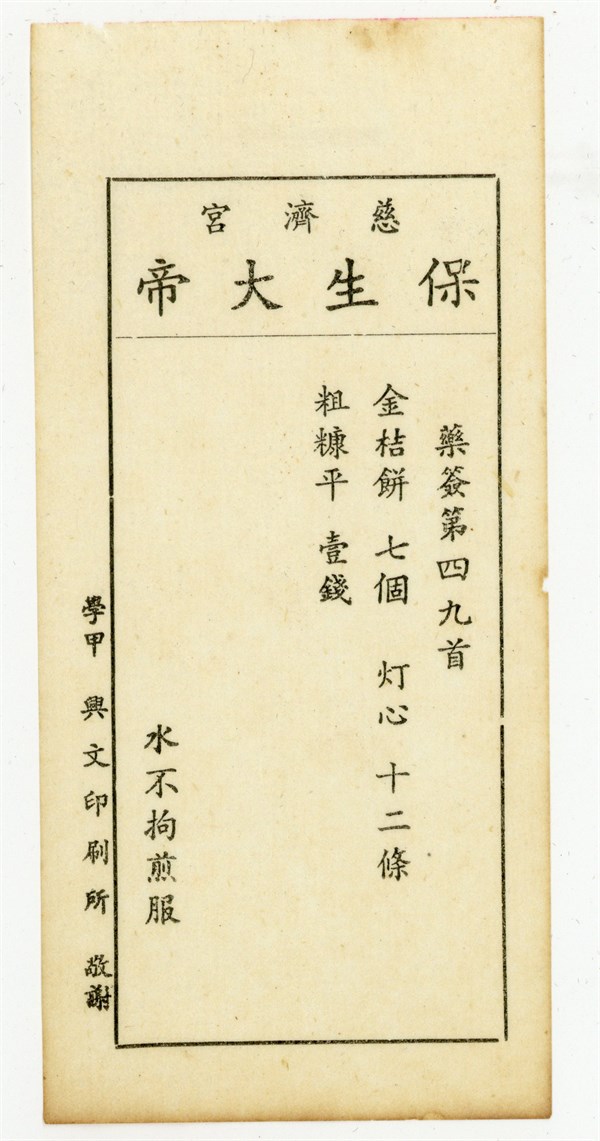 慈濟宮
保生大帝
藥簽第四九首
金桔餅 七個 灯心 十二條
粗糠平 壹錢
水不拘煎服
學甲 興文印刷所 敬謝